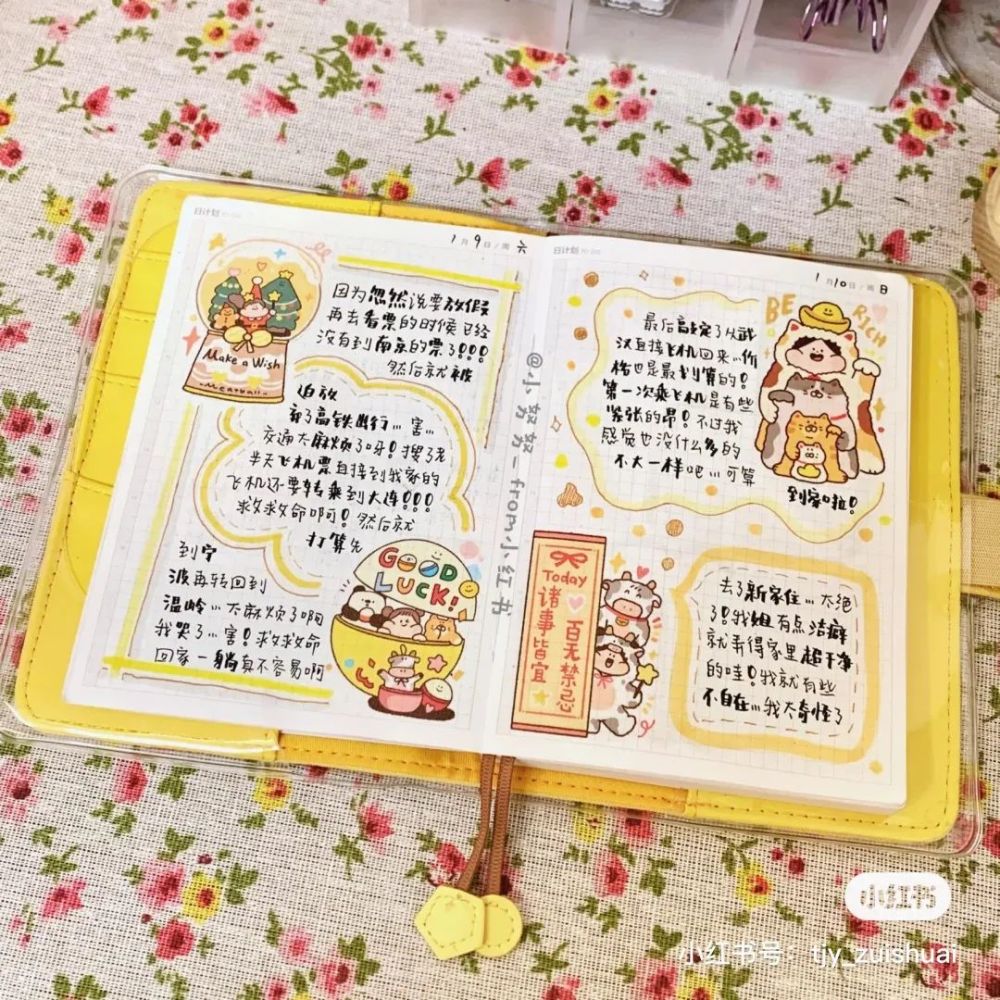 日计划
1月9日/周六
因为忽然说要放假
再去看票的时候已经
没有到南京的票了!!!
然后就被
Make a Wish
Meatball
迫放
都了高铁出行...害...
交通太麻烦了呀!搜了老
半天飞机票直接到我家的
飞机还要转乘到大连!!!
救救命啊可!然后就
打算先
到宁
波再转回到
温岭...太麻烦了啊
我哭了...害!求救救命
回家一趟真不容易啊
GOOD
LUCK!
@小努努-from小红书
日计划
1月10日/周日
最后敲定了从武
汉直接飞机回来...价
格也是最划算的!
第一次乘飞机是有些
紧张的昂!不过我
感觉也没什么多的
不大一样吧...可算
到家啦!
BE
RICH
Today
诸事皆宜
百无禁忌
去了新家住...太绝
了!我姐有点洁癖
就弄得家里超干净
的哇!我就有些
不自在...我太奇怪了
小红书
小红书号:tjy_zuishuai